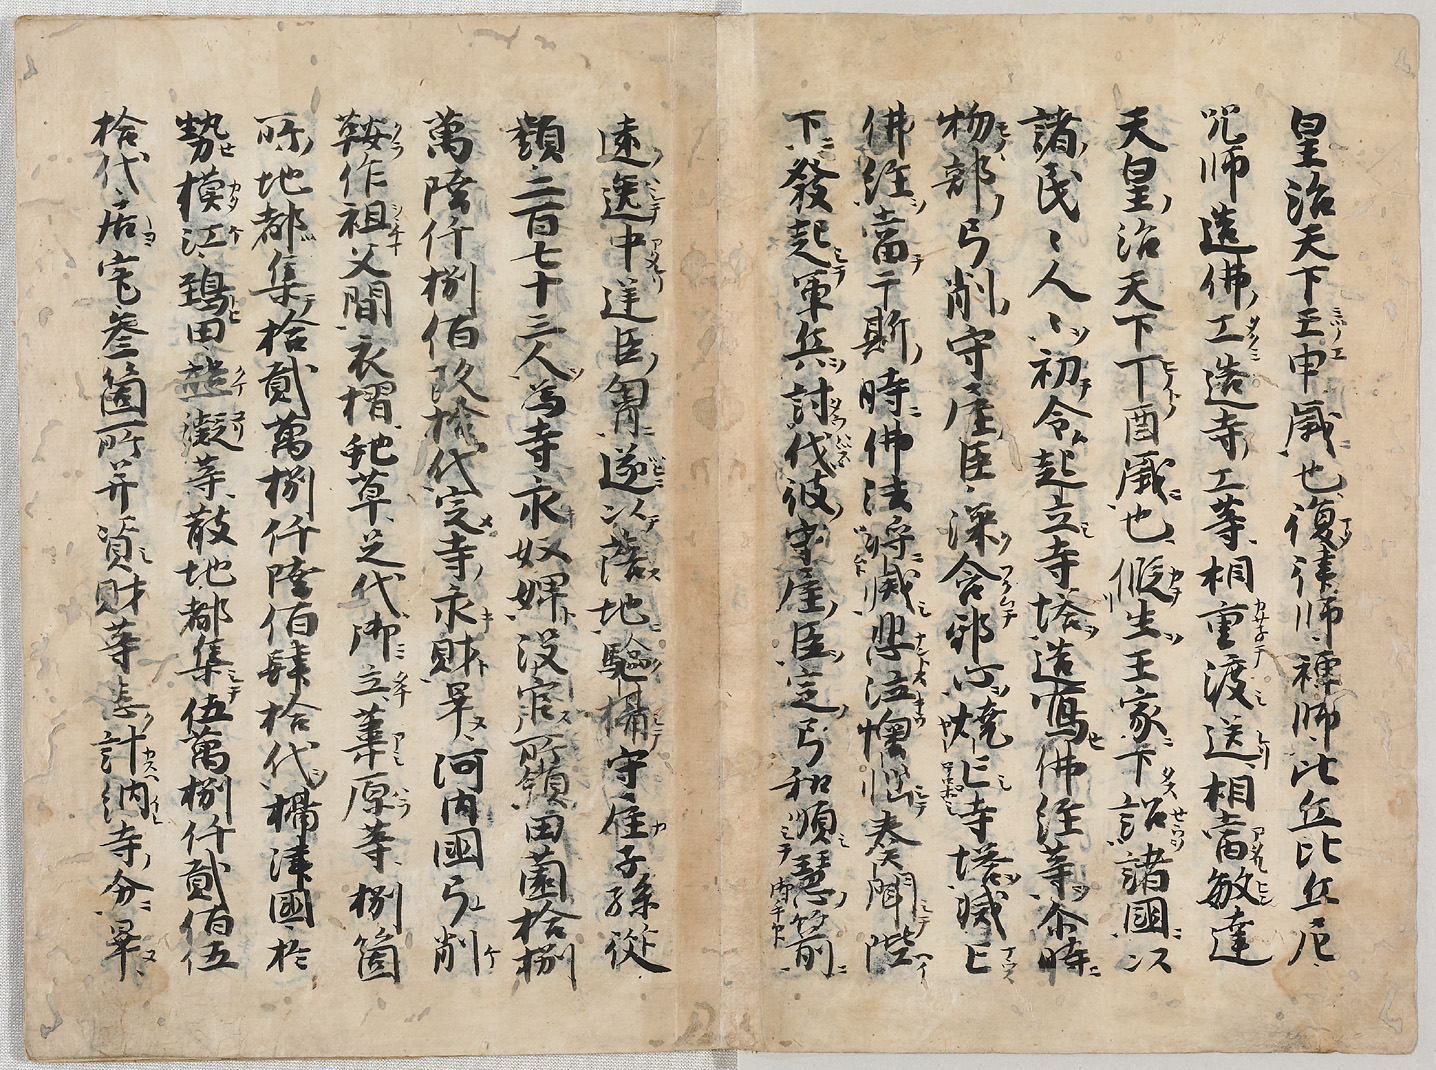 皇治天下壬申歳也復律師禅師比丘比丘尼
咒师造佛工造寺工等相重渡送相當敏達
天皇治天下丁酉歳也假生王家下詔諸國以
諸民〻人〻初令起立寺塔造寫佛経等尒時
物部弓削守屋臣深含邪心焼亡寺塔滅亡
佛経當于斯時佛法将滅悲泣懊惱奏聞陛
下發起軍兵討伐彼守屋臣定弓和順慧箭
遠逸中逆臣胷遂以蔭地駈攝守屋子孫従
類二百七十三人為寺永奴婢没官所領田薗拾捌
萬陸仟捌佰玖拾代定寺永財畢河内國弓削
鞍作祖父間衣摺虵草足代御立葦原等捌箇
所地都集拾貳萬捌仟陸佰肆拾代攝津國於
勢模江鵄田熊凝等散地都集伍萬捌仟貳佰伍
拾代居宅叁箇所并資財等悉計納寺分畢